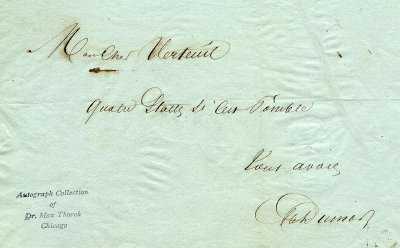 Mon cher Verteuil
quatre Stalles Si c'est Possible
Pour avoir
Alex Dumas
Autograph Collection
of
Dr. Max Thorek
Chicago